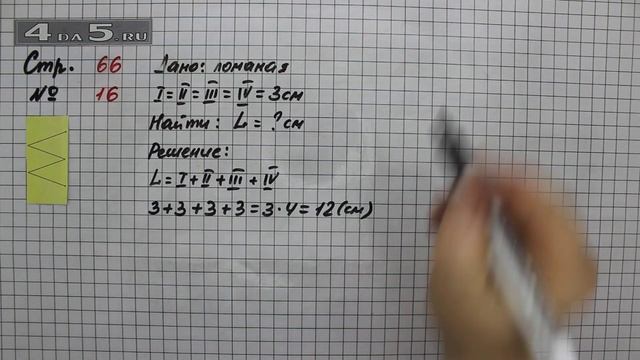 4DA5.RU
Стр. 66
№ 16
Дано: ломаная
I = II = III = IV = 3 см
Найти: L = ? см
Решение:
L = I + II + III + IV
3 + 3 + 3 + 3 = 3 · 4 = 12 (см)